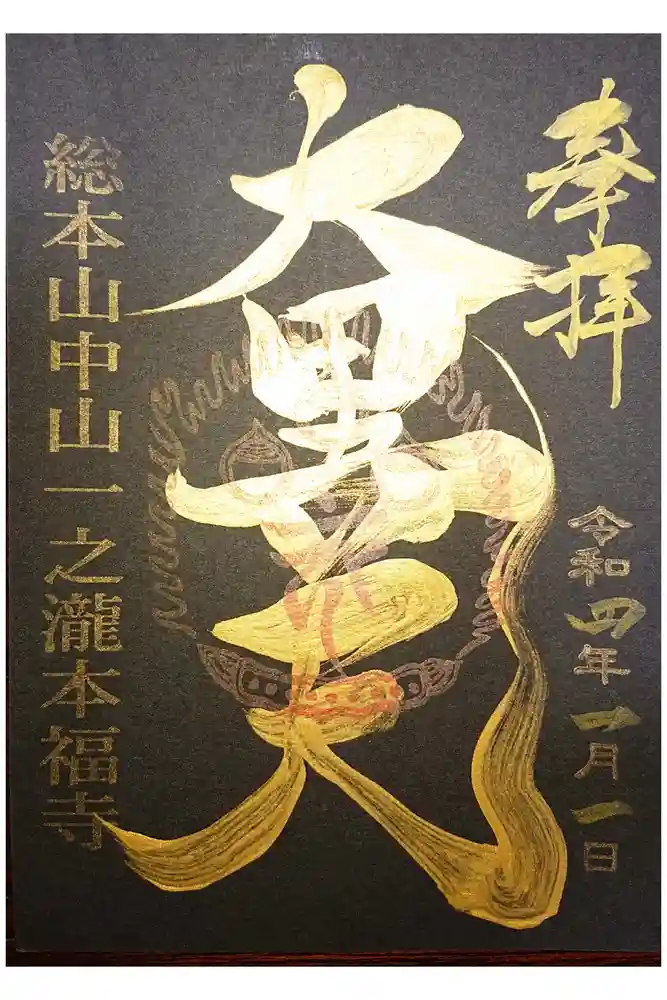 奉拝
令和四年一月一日
大黒天
総本山中山一之瀧本福寺